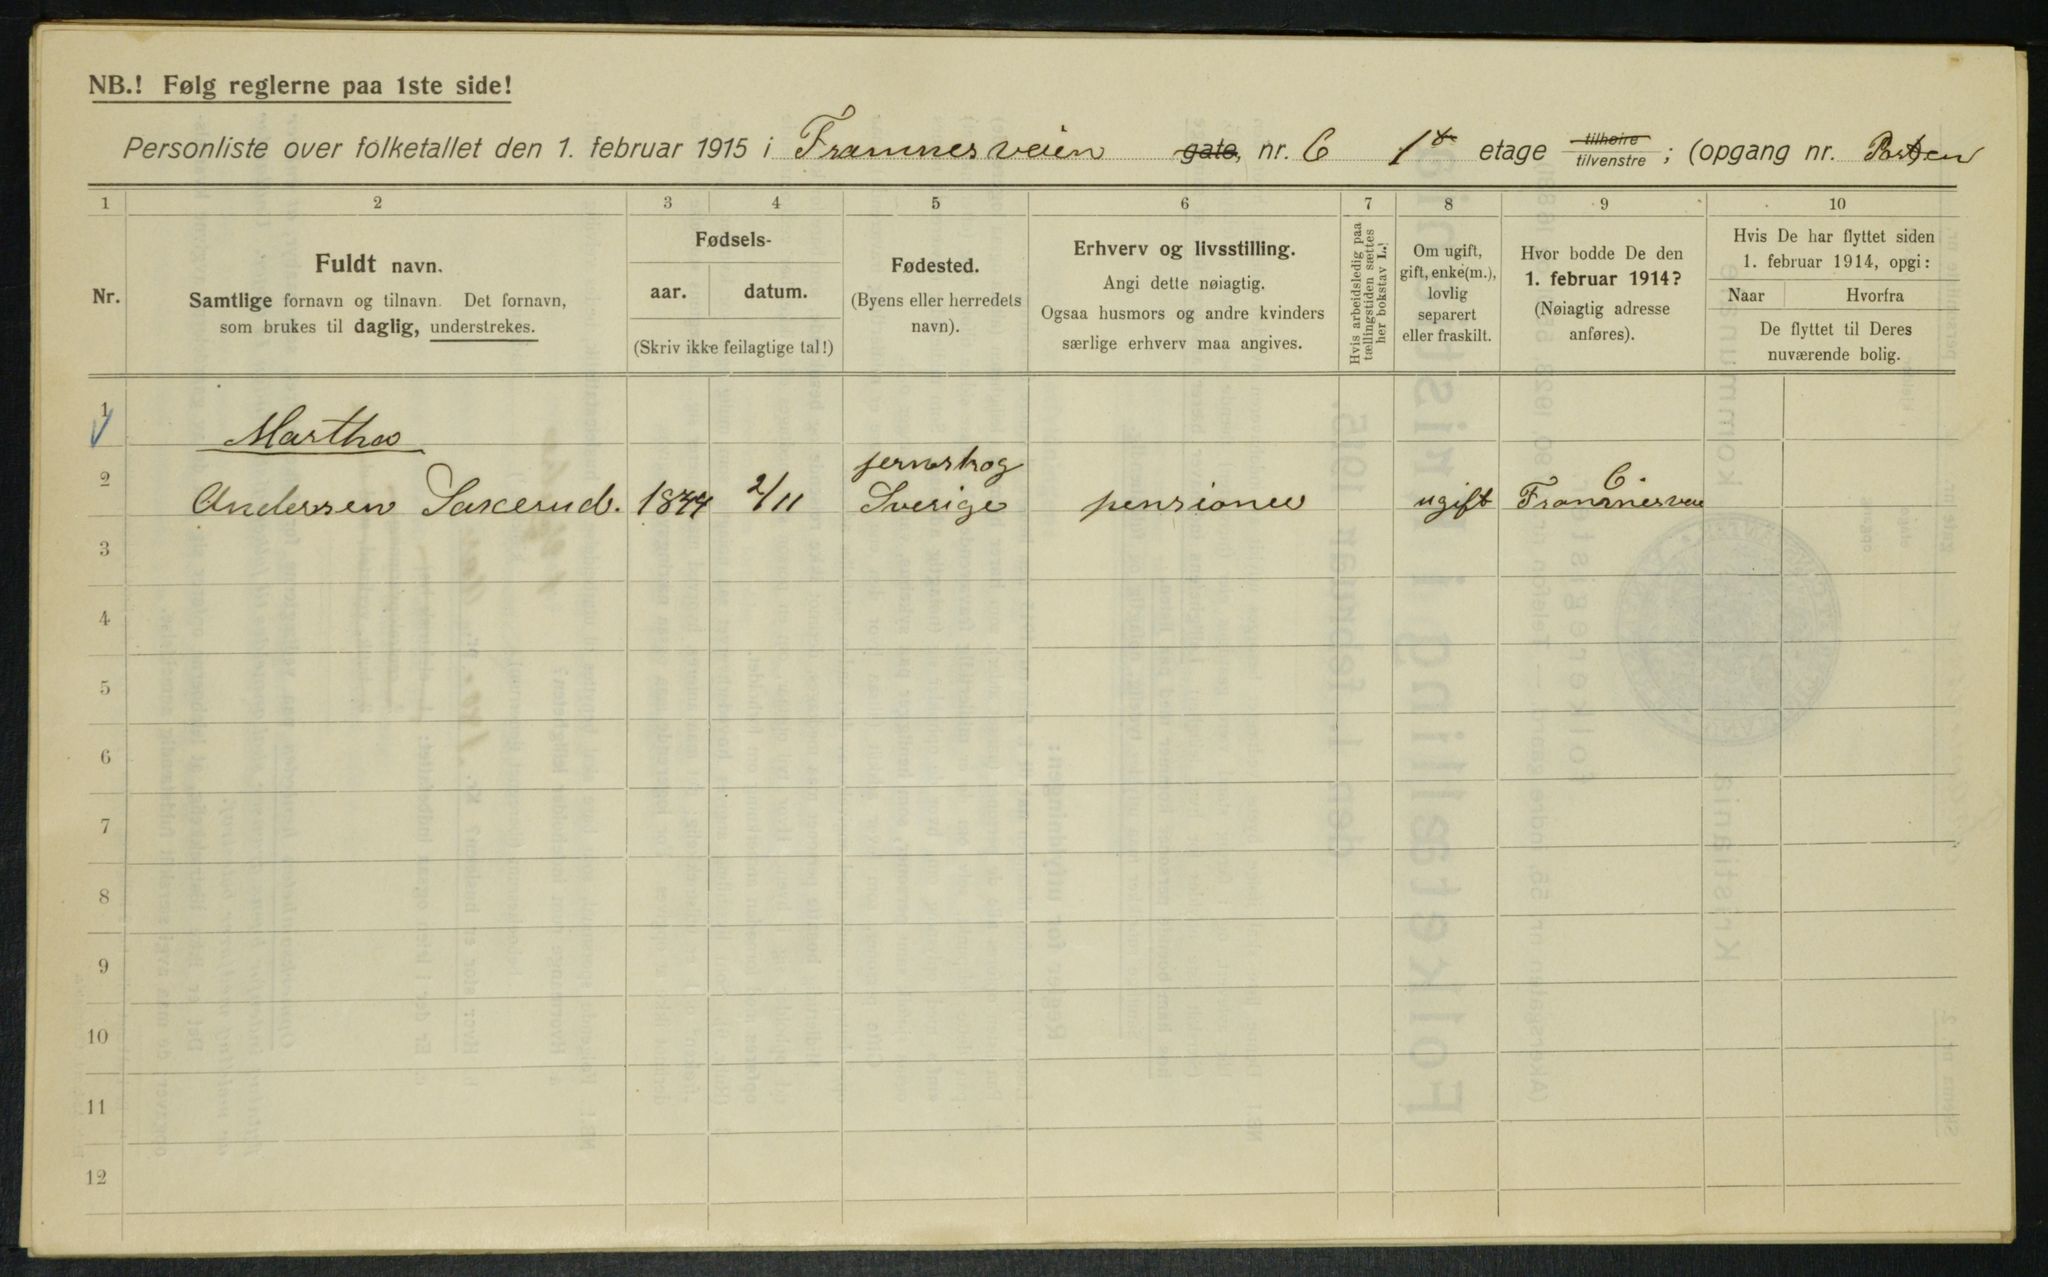 NB.! Følg reglerne paa 1ste side!
Personliste over folketallet den 1. februar 1915 i Framnesveien gate, nr. 6 1ste etage tilhøire tilvenstre ; (opgang nr.
1 2 3 4 5 6 7 8 9 10
Nr.
Fuldt navn.
Samtlige fornavn og tilnavn. Det fornavn,
som brukes til daglig, understrekes.
Fødsels-
aar. datum.
(Skriv ikke feilagtige tal!)
Fødested.
(Byens eller herredets
navn).
Erhverv og livsstilling.
Angi dette nøiagtig.
Ogsaa husmors og andre kvinders
særlige erhverv maa angives.
Hvis arbeidsledig paa
tællingstiden sættes
her bokstav L.!
Om ugift,
gift, enke(m.),
lovlig
separert
eller fraskilt.
Hvor bodde De den
1. februar 1914?
(Nøiagtig adresse
anføres).
Hvis De har flyttet siden
1. februar 1914, opgi:
Naar Hvorfra
De flyttet til Deres
nuværende bolig.
1 Martha
jernskog 6
2 Anderssen Saxerud. 2/11 Sverige pensioner ugift Framnesveie
3
4
5
6
7
8
9
10
11
12